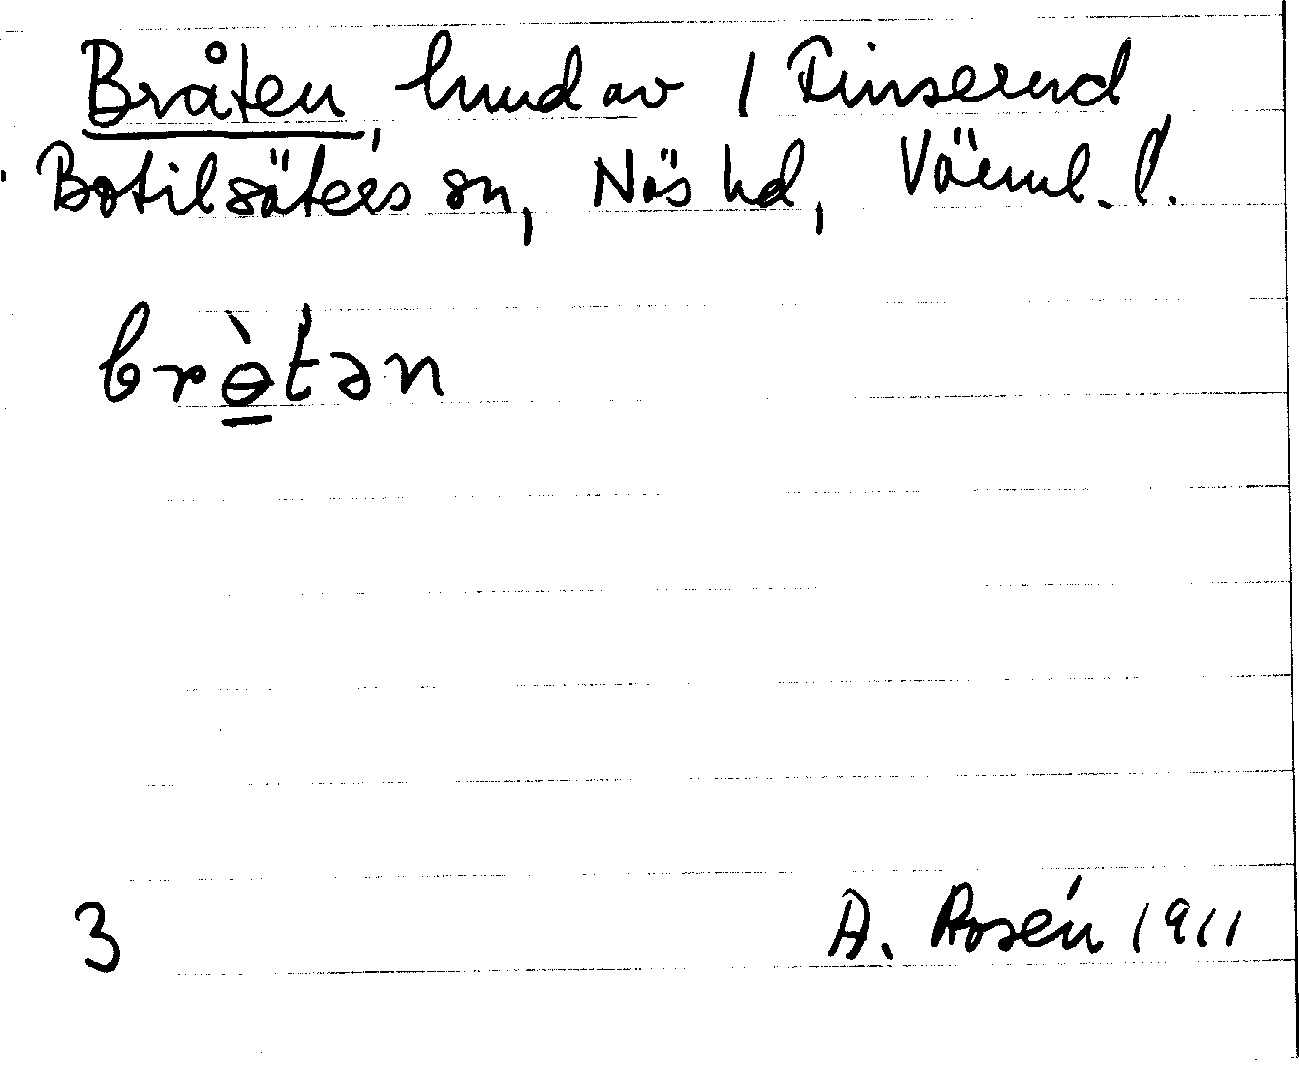 Bråten, hmd av 1 Finserud
Botilsäters sn, Näs hd, Värml. l.
brɵ̠̀tən
3
A. Rosén 1911